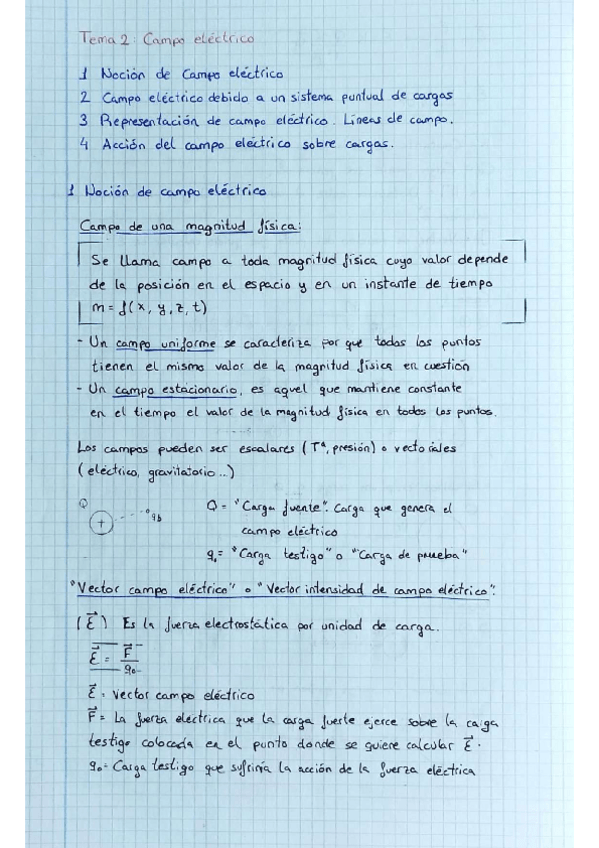 Tema 2: Campo eléctrico
1 Noción de Campo eléctrico
2 Campo eléctrico debido a un sistema puntual de cargas
3 Representación de campo eléctrico. Líneas de campo.
4 Acción del campo eléctrico sobre cargas.
1 Noción de campo eléctrico
Campo de una magnitud física:
Se llama campo a toda magnitud física cuyo valor depende
de la posición en el espacio y en un instante de tiempo
m = f(x, y, z, t)
- Un campo uniforme se caracteriza por que todos los puntos
tienen el mismo valor de la magnitud física en cuestión
- Un campo estacionario, es aquel que mantiene constante
en el tiempo el valor de la magnitud física en todos los puntos.
Los campos pueden ser escalares (Tª, presión) o vectoriales
(eléctrico, gravitatorio...)
Q = "Carga fuente". Carga que genera el
campo eléctrico
Q
+
q₀ = "Carga testigo" o "Carga de prueba"
"Vector campo eléctrico" o "Vector intensidad de campo eléctrico".
(E⃗) Es la fuerza electrostática por unidad de carga.
E⃗ = F⃗/q₀
E⃗ = vector campo eléctrico
F⃗ = La fuerza eléctrica que la carga fuente ejerce sobre la carga
testigo colocada en el punto donde se quiere calcular E⃗.
q₀ = Carga testigo que sufriría la acción de la fuerza eléctrica